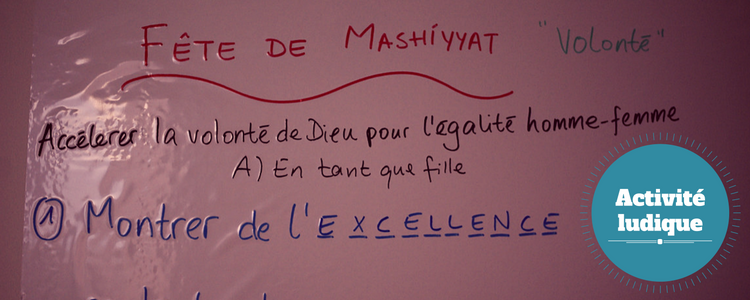 FÊTE DE MASHÍYYAT "Volonté"
Accélerer la volonté de Dieu pour l'égalité homme-femme
A) En tant que fille
① Montrer de l'EXCELLENCE
Activité
ludique